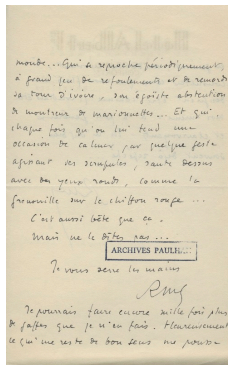 monde... Qui se reproche périodiquement,
à grand jeu de refoulements et de remords
sa tour d'ivoire, son égoïste abstention
de montreur de marionnettes... Et qui,
chaque fois qu'on lui tend une
occasion de calmer par quelque geste
agissant ses scrupules, saute dessus
avec des yeux ronds, comme la
grenouille sur le chiffon rouge...
C'est aussi bête que ça.
Mais ne le dites pas...
ARCHIVES PAULHAN
Je vous serre les mains
RMG
Je pourrais faire encore mille fois plus
de gaffes que je n'en fais. Heureusement
le qui me reste de bon sens me pousse